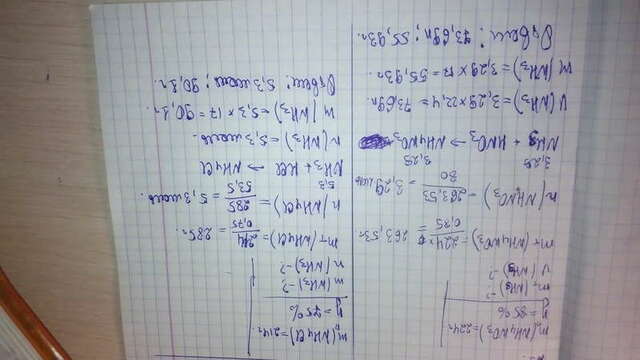 mp(NH₄NO₃)=224г
η=85%
m(NH₃)-?
V(NH₃)-?
mт(NH₄NO₃)=224/0,85=263,53г
n(NH₄NO₃)=263,53/80=3,29моль
3,29 3,29
NH₃ + HNO₃ → NH₄NO₃
V(NH₃)=3,29×22,4=73,69л
m(NH₃)=3,29×17=55,93г
Ответ: 73,69л; 55,93г.
mp(NH₄Cl)=214г
η=75%
m(NH₃)-?
n(NH₃)-?
mт(NH₄Cl)=214/0,75=285г
n(NH₄Cl)=285/53,5=5,3моль
5,3
NH₃ + HCl → NH₄Cl
n(NH₃)=5,3моль
m(NH₃)=5,3×17=90,1г
Ответ: 5,3моль; 90,1г.